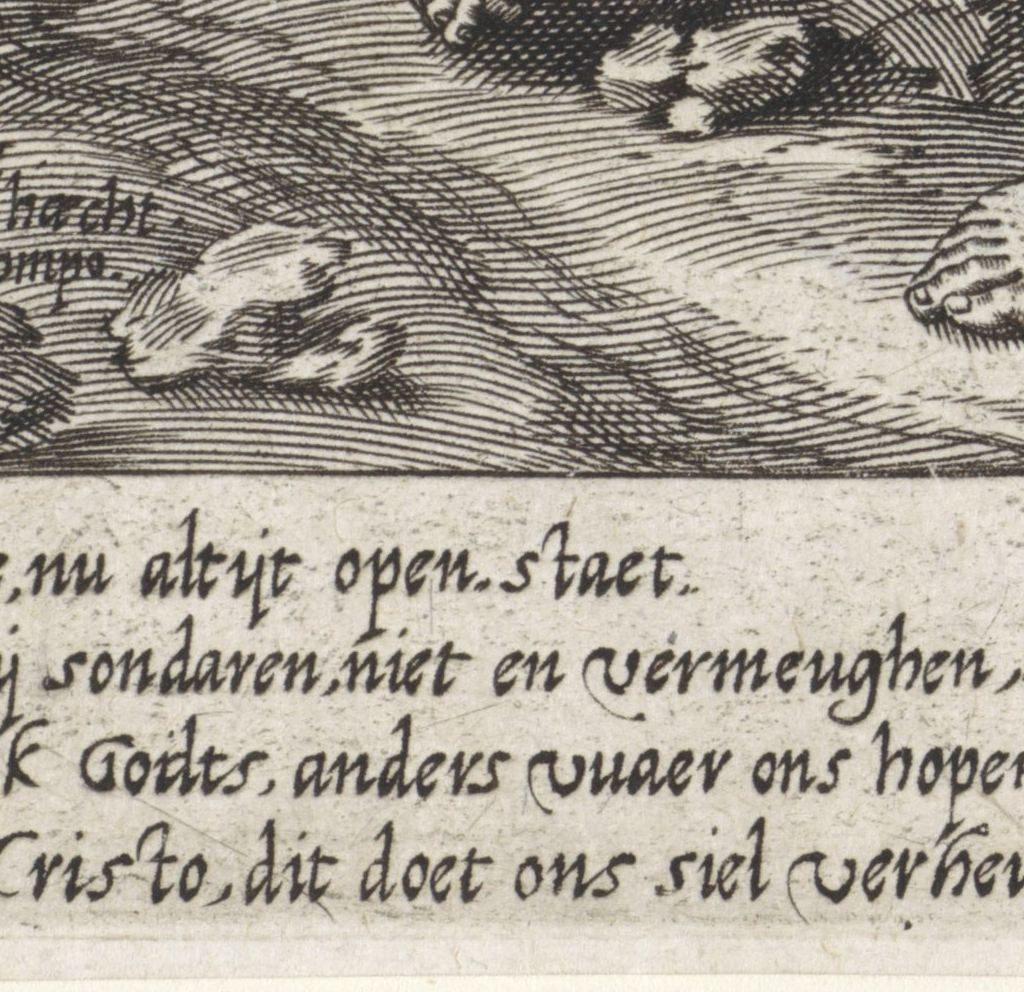 hæcht.
ompo.
e, nu altyt open. staet.
ij sondaren, niet en vermeughen,
k Godts, anders vuaer ons hopen
Cristo, dit doet ons siel verheu